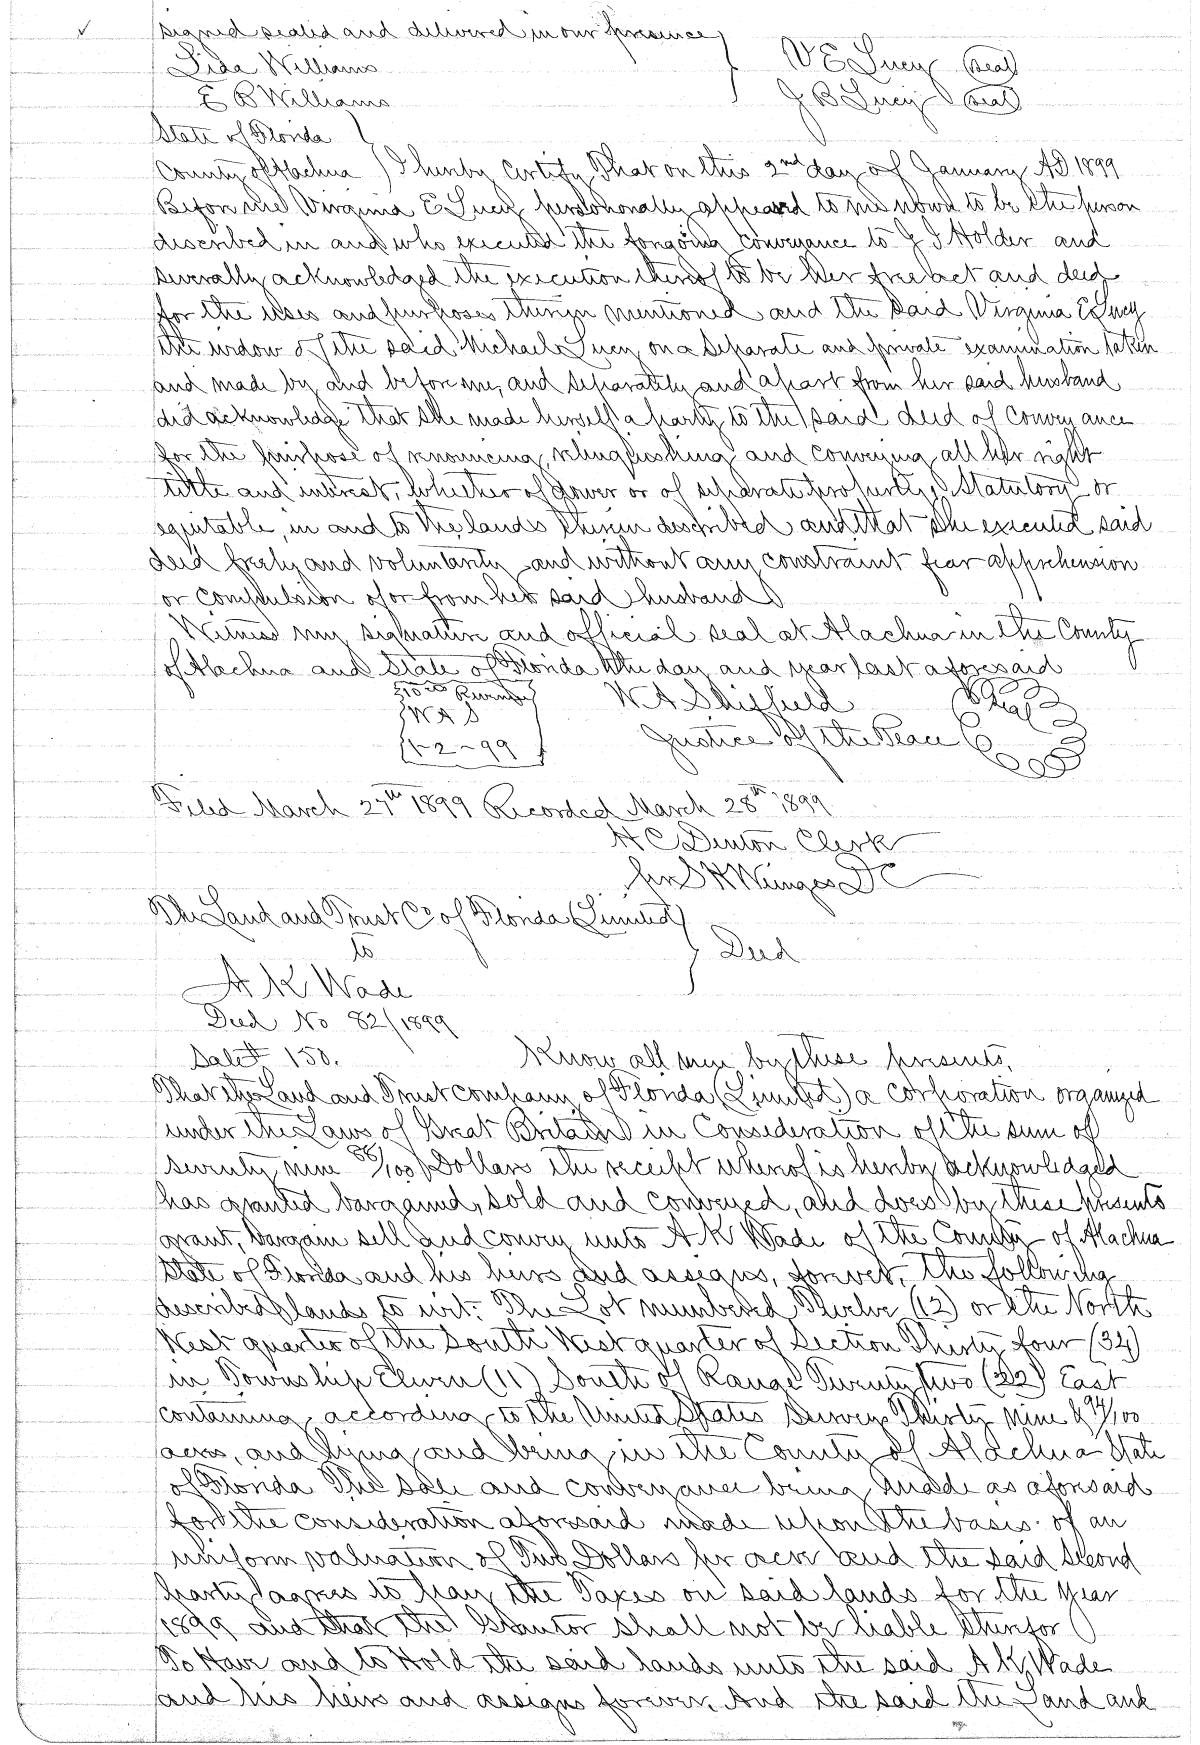 signed sealed and delivered in our presence
Lida Williams V E Lucy (seal)
E B Williams J B Lucy (seal)
State of Florida
County of Alachua I hereby Certify That on this 2nd day of January AD 1899
Before me Virginia E Lucy personally appeared to me nown to be the person
described in and who executed the forgoing conveyance to J J Holder and
severally acknowledged the execution thereof to be her free act and deed
for the uses and purposes therein mentioned and the said Virginia E Lucy
the widow of the said Michael Lucy on a separate and private examination taken
and made by and before me, and separately and apart from her said husband
did acknowledge that she made herself a party to the said deed of conveyance
for the purpose of renouncing, relinquishing and conveying all her right
title and interest, whether of dower or of separate property, Statutory or
equitable, in and to the lands therein described and that she executed said
deed freely and voluntarily and without any constraint fear apprehension
or compulsion of or from her said husband
Witness my signature and official seal at Alachua in the County
of Alachua and State of Florida the day and year last aforesaid
W A Shiffield (Seal)
W A S
Justice of the Peace
1-2-99
Filed March 27th 1899 Recorded March 28th 1899
H C Denton Clerk
per S H Wienges DC
The Land and Trust Co of Florida (Limited)
to Deed
A K Wade
Deed No 82/1899
Sale # 150. Know all men by these presents,
That the Land and Trust Company of Florida (Limited) a corporation organized
under the Laws of Great Britain in Consideration of the sum of
seventy nine 88/100 Dollars the receipt whereof is hereby acknowledged
has granted bargained, sold and conveyed, and does by these presents
grant, bargain sell and convey unto A K Wade of the County of Alachua
State of Florida and his heirs and assigns, forever, the following
described lands to wit: The Lot numbered Twelve (12) or the North
West quarter of the South West quarter of Section Thirty four (34)
in Township Eleven (11) South of Range Twenty two (22) East
containing, according to the United States Survey Thirty Nine & 94/100
acres, and lying and being in the County of Alachua State
of Florida The sale and conveyance being made as aforesaid
for the consideration aforesaid made upon the basis of an
uniform valuation of Two Dollars per acre and the said second
party agrees to pay the Taxes on said lands for the year
1899 and that the Grantor shall not be liable therefor
To Have and to Hold the said lands unto the said A K Wade
and his heirs and assigns forever. And the said the Land and